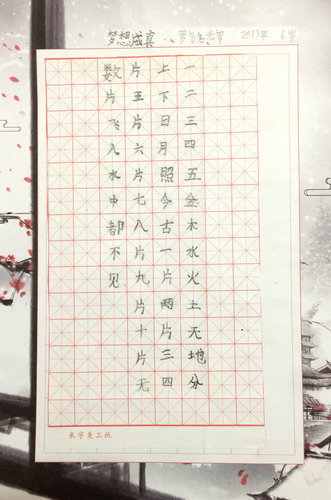 梦想成真 2013年 6岁
一二三四五金木水火土天地分
上下日月照今古一片两片三四
片五六片七八片九片十片无
数片飞入水中都不见
米字美工纸